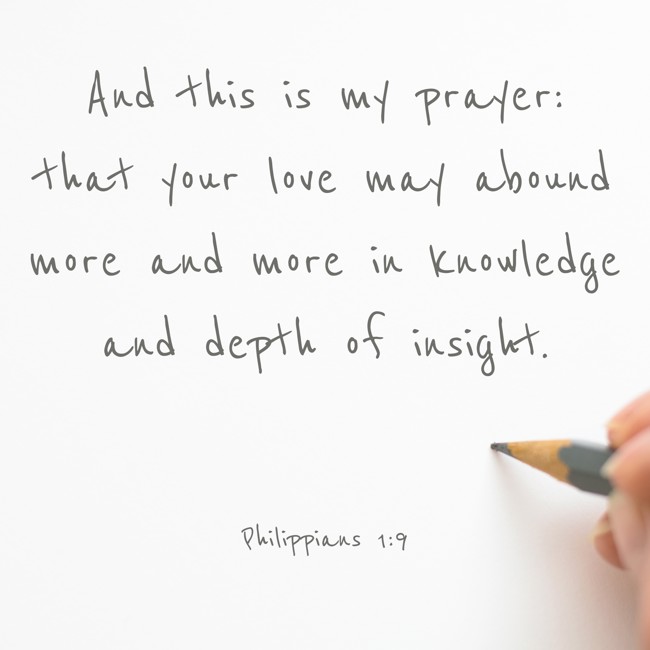 And this is my prayer:
that your love may abound
more and more in knowledge
and depth of insight.
Philippians 1:9